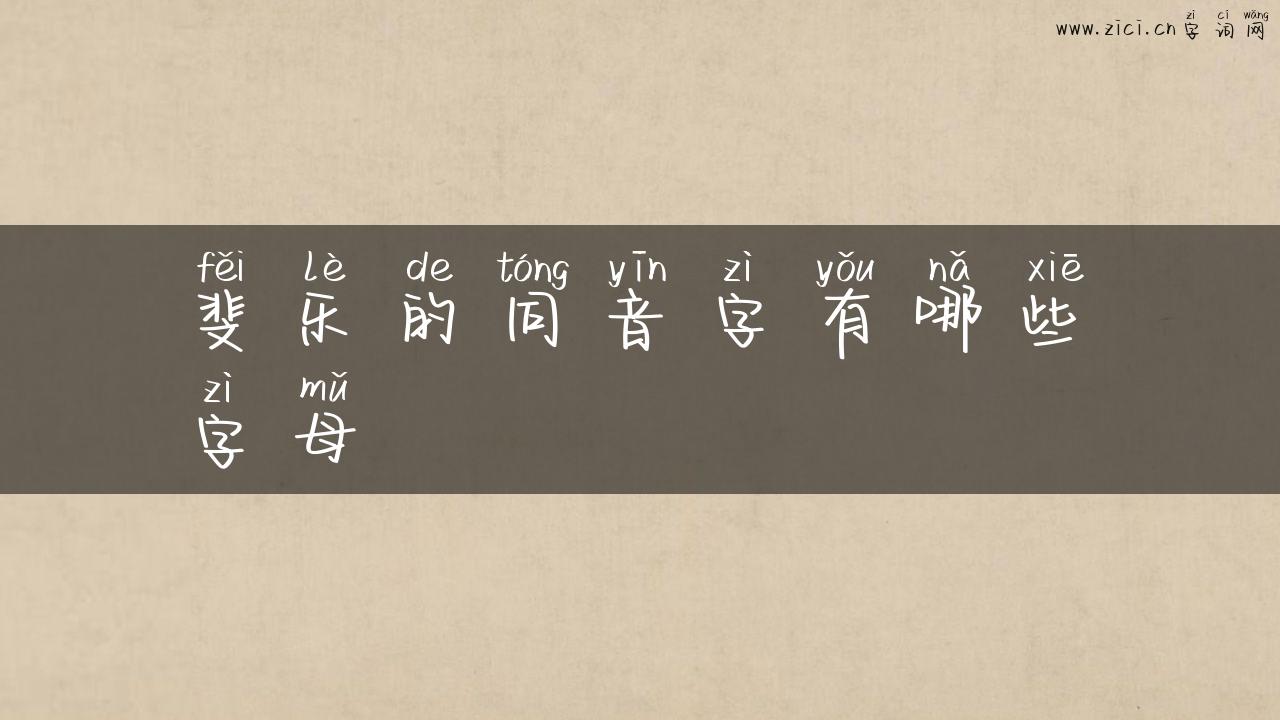 zì cí wǎng
www.zici.cn 字词网
fěi lè de tóng yīn zì yǒu nǎ xiē
斐乐的同音字有哪些
zì mǔ
字母